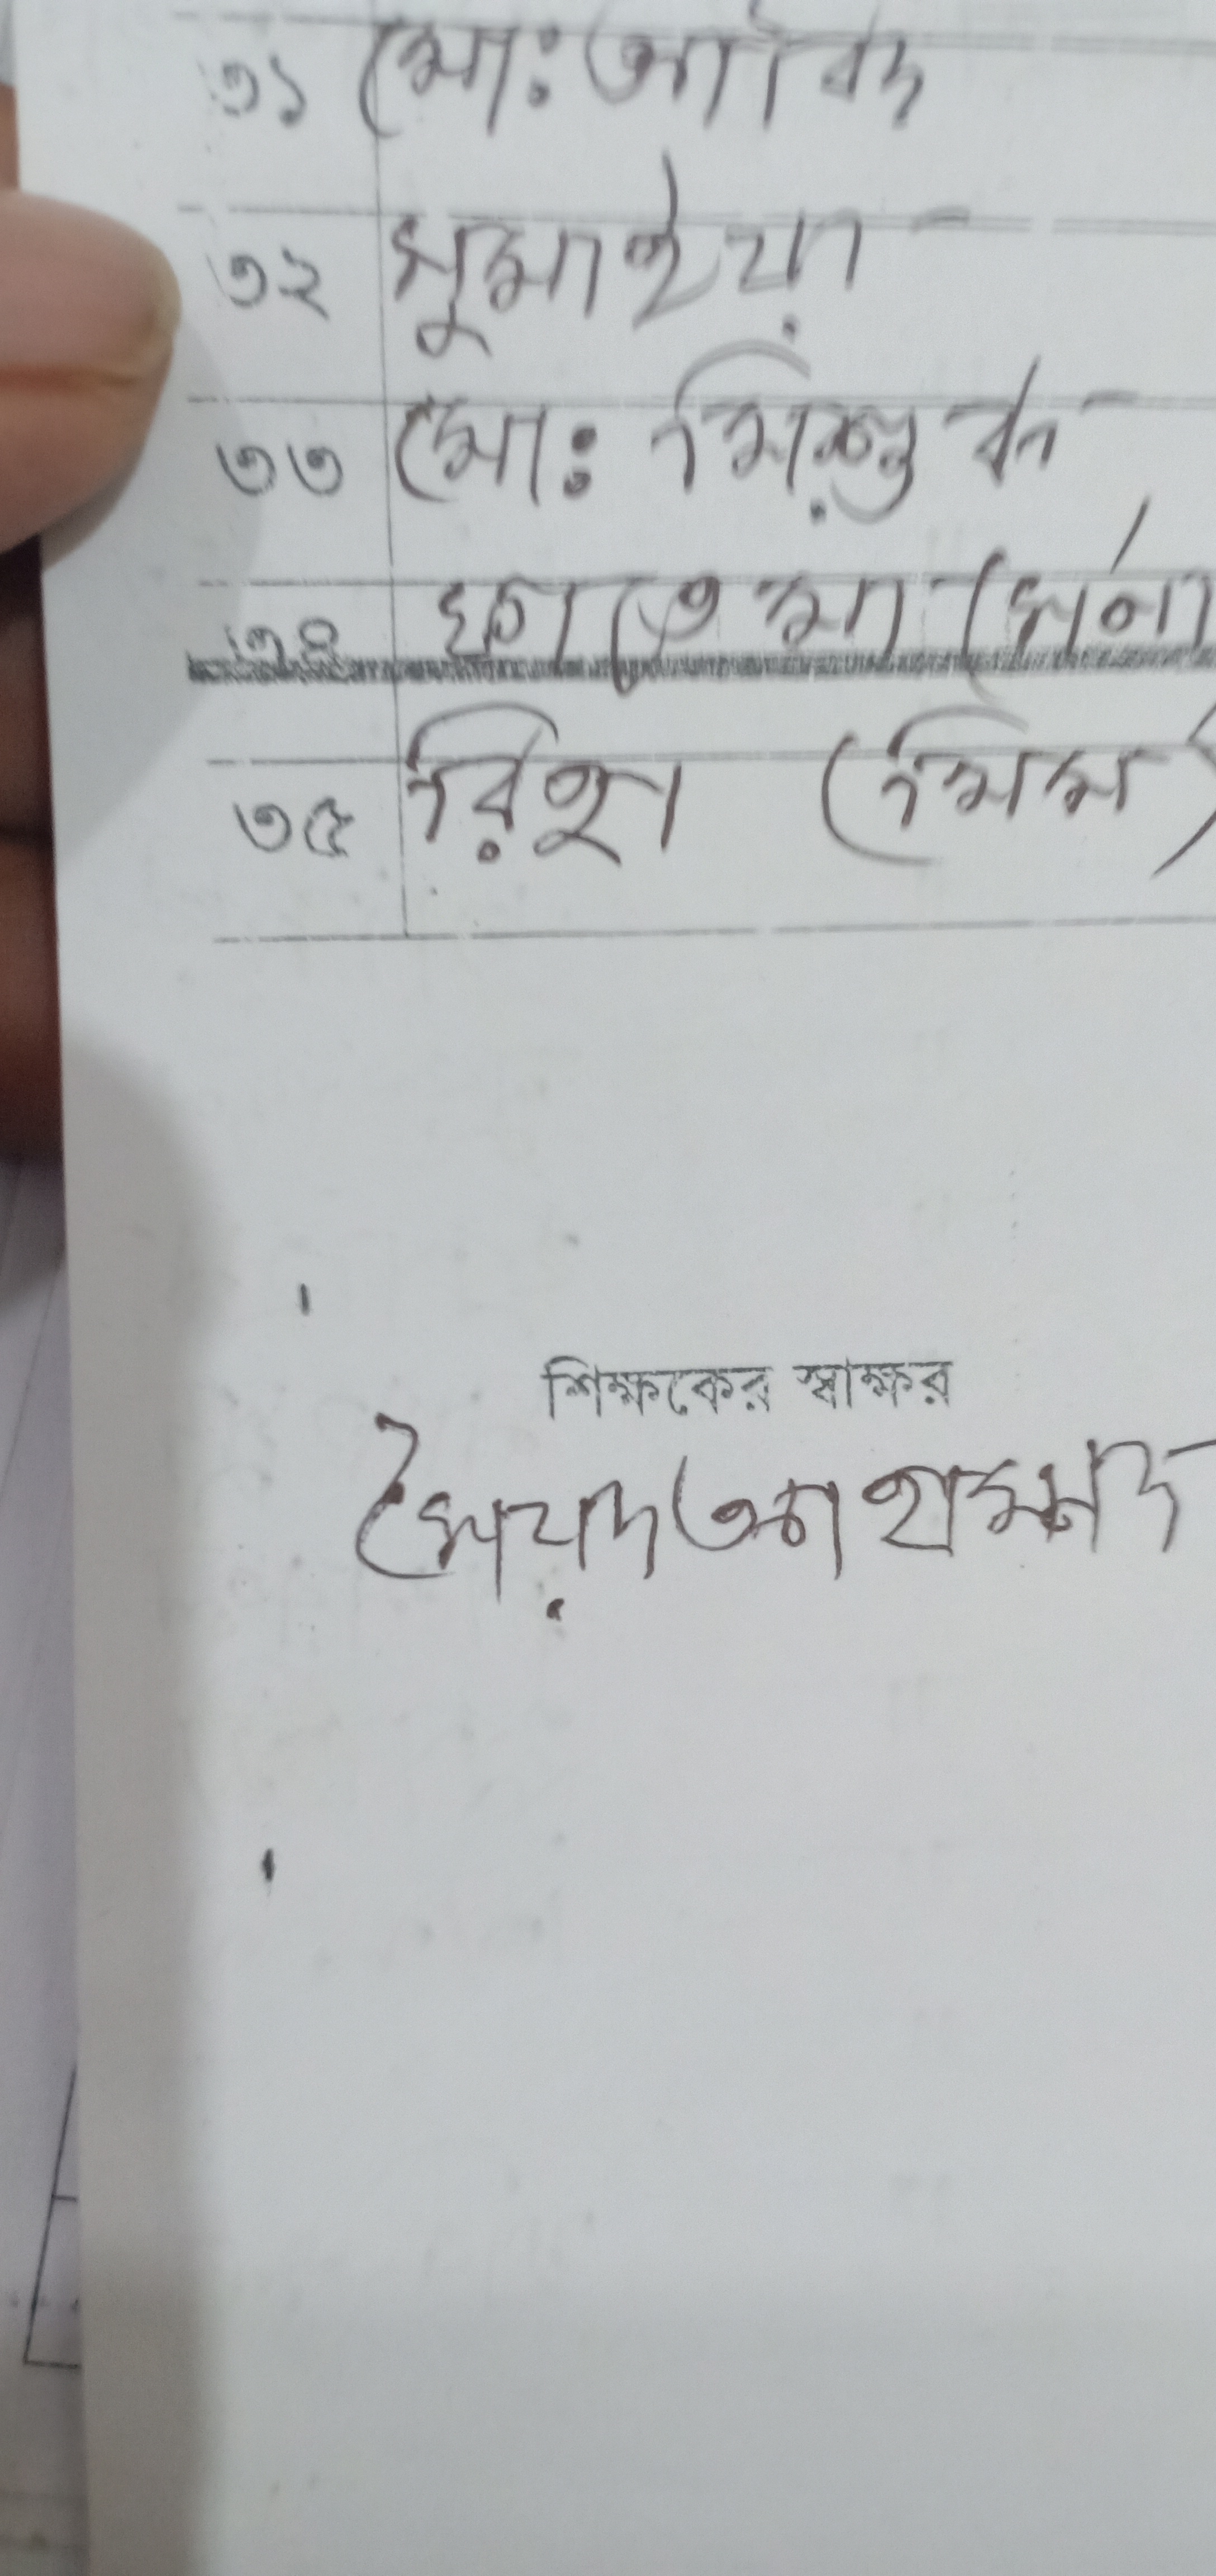 ৩১ মোঃ আবিদ
৩২ সুমাইয়া
৩৩ মোঃ
৩৪ ফাতেমা
৩৫ (মিম)
শিক্ষকের স্বাক্ষর
সৈয়দ আহাম্মদ